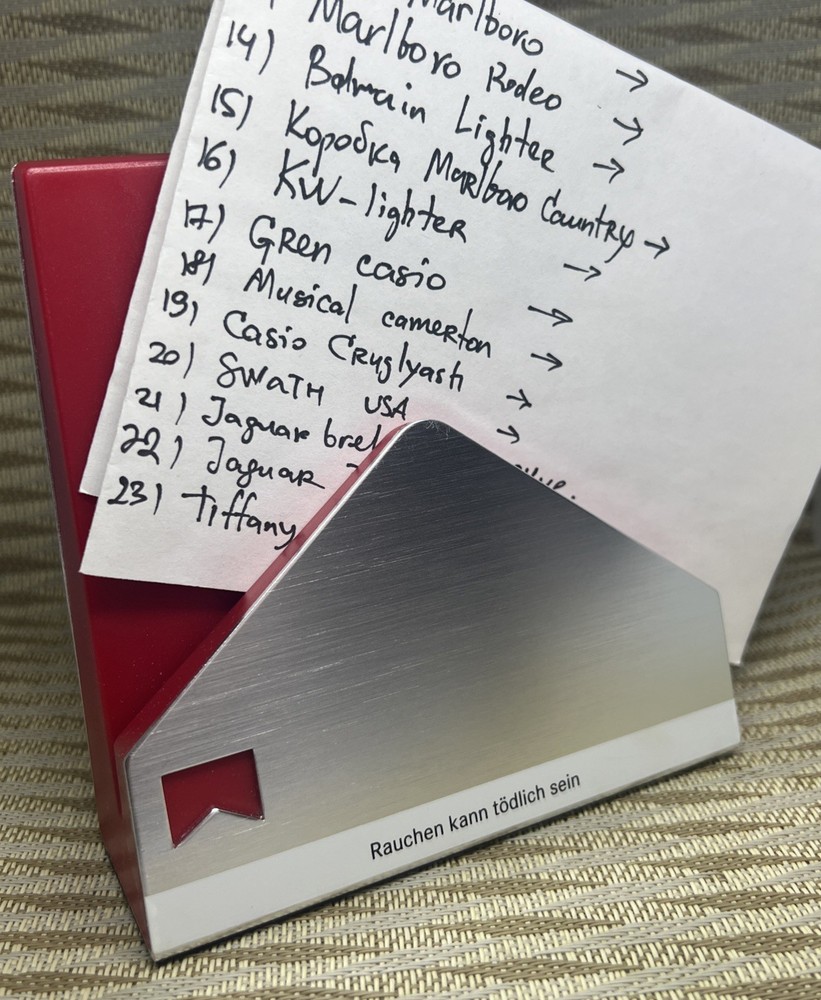 Marlboro →
Marlboro Rodeo →
14) Balmain Lighter →
15) Коробка Marlboro Country →
16) KW-lighter →
17) Gren casio →
18) Musical camerton →
19) Casio Cruglyash →
20) SWATH USA →
21) Jaguar brel
22) Jaguar
23) Tiffany
Rauchen kann tödlich sein